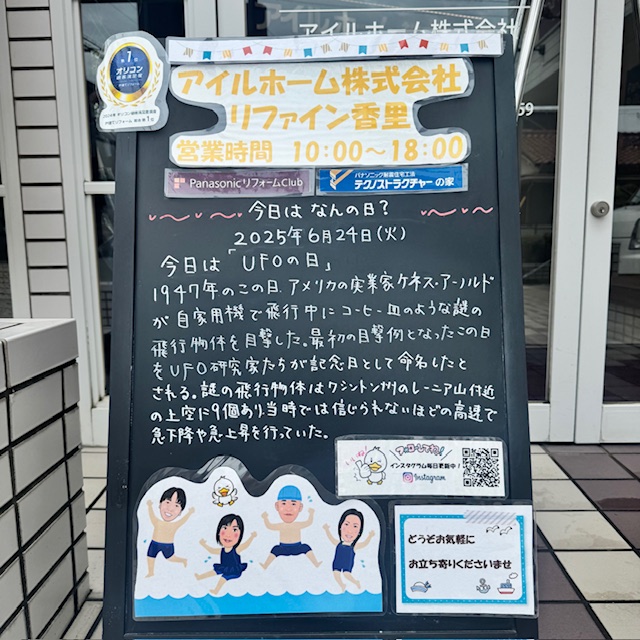 アイルホーム株式会社
第1位
オリコン
顧客満足度
アイルホーム株式会社
リファイン香里
営業時間 10:00～18:00
PanasonicリフォームClub
パナソニック耐震住宅工法
テクノストラクチャーの家
59
今日は なんの日?
2025年6月24日(火)
今日は「UFOの日」
1947年のこの日、アメリカの実業家ケネス・アーノルド
が自家用機で飛行中にコーヒー皿のような謎の
飛行物体を目撃した。最初の目撃例となったこの日
をUFO研究家たちが記念日として命名したと
される。謎の飛行物体はワシントン州のレーニア山付近
の上空に9個あり、当時では信じられないほどの高速で
急下降や急上昇を行っていた。
いいね!
フォローしてね!
インスタグラム毎日更新中!
Instagram
どうぞお気軽に
お立ち寄りくださいませ